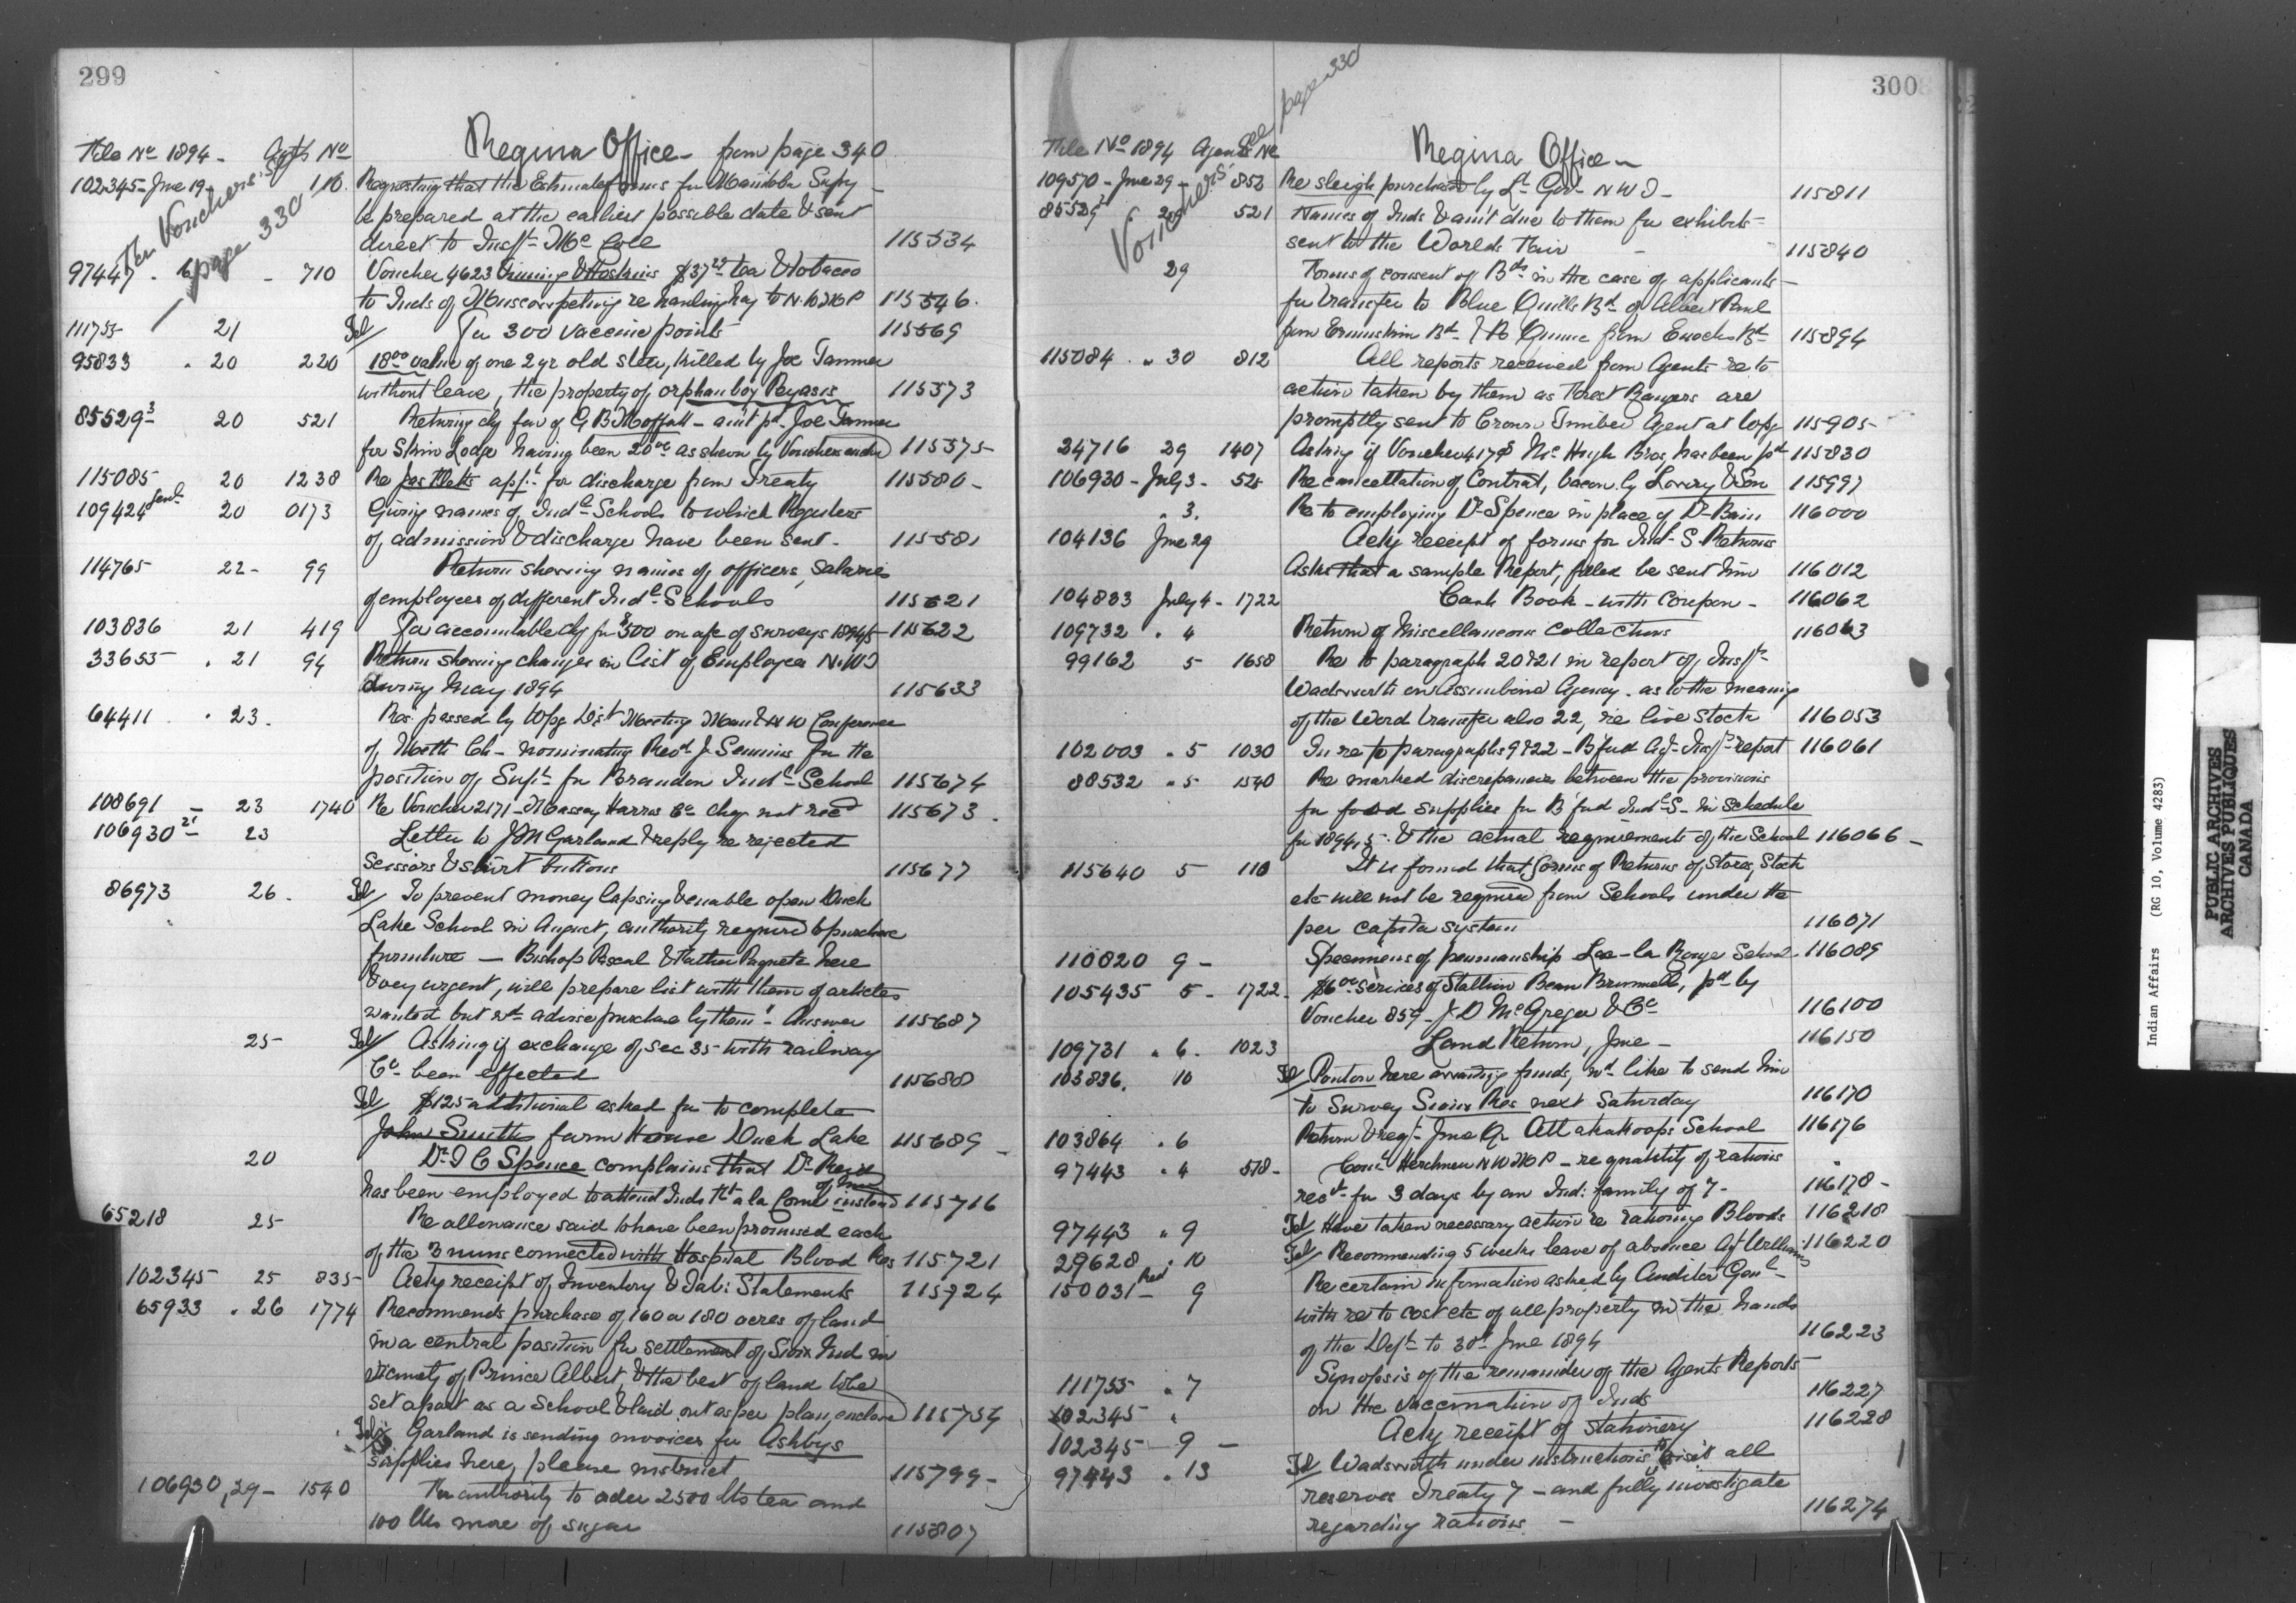 299
Regina Office - from page 340
File No 1894 - Agts No
For Vouchers See page 330
102345 - Jne 19 - 110. Requesting that the Estimate forms for Manitoba Supy
be prepared at the earliest possible date & sent
direct to Inspr McColl 115534
97447 710 Voucher 4623 & Hoskins $37 tea & tobacco
to Inds of Muscowpetung re hauling hay to N.W.M.P 115546.
111755 21 Tel/ For 300 vaccine points 115569
95833 . 20 220 18.00 value of one 2 yr old steer, killed by Joe Tanner
without leave, the property of orphan boy Peyasis 115573
85529 3 20 521 Returning chq fav of G B Moffatt - am't pd. Joe Tanner
for Skin Lodge having been 20.00 as shewn by Vouchers 115575
115085 20 1238 Re Jas Fletts appn for discharge from Treaty 115580 -
109424 20 0173 Giving names of Indl Schools to which Registers
of admission & discharge have been sent - 115581
114765 22 - 99 Return shewing names of officers, salaries
of employees of different Indl Schools 115621
103836 21 419 For accountable chq for $500 on a/c of surveys 1894/5 115622
33655 . 21 94 Return shewing changes in list of Employees N.W.T
during May 1894 115633
64411 . 23. Res. passed by Wpg Dist Meeting Man & N W Conference
of Meth Ch - nominating Revd J. Semmins for the
position of Supt for Brandon Indl School 115674
108691 - 23 1740 Re Voucher 2171 - Massey Harris Co chq not recd 115673.
106930 21 - 23 Letter to J M Garland & reply re rejected
Scissors & shirt buttons 115677
86973 26. Tel/ To prevent money lapsing & enable open Duck
Lake School in August, authority required to purchase
furniture - Bishop Pascal & Father Paquete here
& very urgent, will prepare list with them of articles
wanted but wd advise purchase by them. Answer 115687
25 - Tel/ Asking if exchange of sec 35 with railway
Co been effected 115688
Tel/ $125 additional asked for to complete
John Smiths farm House Duck Lake 115689 -
20 Dr T C Spence complains that Dr Reid
has been employed to attend Inds Ft a la Corne instead of him 115716
65218 25 - Re allowance said to have been promised each
of the 3 nuns connected with Hospital Blood Res 115721
102345 25 835 - Ackg receipt of Inventory & Tab: Statements 115724
65933 . 26 1774 Recommends purchase of 160 or 180 acres of land
in a central position for settlement of Sioux Ind in
vicinity of Prince Albert & the best of land to be
set apart as a School & laid out as per plan enclosed 115754
Tel/ Garland is sending invoices for Ashbys
supplies here, please instruct 115799 -
106930, 29 - 1540 For authority to order 2500 lbs tea and
100 lbs more of sugar 115807
300
See page 330
Vouchers
Regina Office -
File No 1894 Agents No
109570 - Jne 29 - 852 Re sleigh purchased by Lt Gov - N W T - 115811
85529 2 29 521 Names of Inds & am't due to them for exhibits
sent to the Worlds Fair - 115840
29 Forms of consent of Bds in the case of applicants
for transfer to Blue Quills Bd of Albert Paul
from Ermineskin Bd & B Quinne from Enochs Bd 115894
115084 . " 30 812 All reports received from Agents re to
action taken by them as Forest Rangers are
promptly sent to Crown Timber Agent at Wpg 115905 -
24716 29 1407 Asking if Voucher 4178 McHugh Bros, has been pd 115830
106930 - July 3 - 525 Re cancellation of Contract, bacon by Lovery & Son 115997
" 3. Re to employing Dr Spence in place of Dr Bain 116000
104136 Jne 29 Ackg receipt of forms for Indl S. Returns
Asks that a sample Report, filled be sent him 116012
104833 July 4 - 1722 Cash Book - with coupon - 116062
109732 " 4 Return of Miscellaneous collections 116063
99162 5 - 1658 Re to paragraph 20 & 21 in report of Inspr
Wadsworth on Assiniboine Agency - as to the meaning
of the word transfer also 22, re live stock 116053
102003 " 5 1030 In re to paragraphs 9 & 22 - B'ford Agy - Inspr report 116061
88532 " 5 1540 Re marked discrepancies between the provisions
for food supplies for B'ford Indl S - in schedule
for 1894/5 & the actual requirements of the School 116066 -
115640 5 110 It is found that forms of Returns of Stores, Stock
etc will not be required from Schools under the
per capita system 116071
110820 9 - Specimens of penmanship Lac-la Ronge School - 116089
105435 5 - 1722 - $6.00 services of Stallion Beau Brummell, pd by
Voucher 859 - J D McGregor & Co 116100
109731 " 6. 1023 Land Return, Jne - 116150
103836. 10 Tel/ Ponton here awaiting funds, wd like to send him
to survey Sioux Res next Saturday 116170
103864 " 6 Return & reqn - Jne Qr Attakakoops School 116176
97443 " 4 518 - Comr Herchmer N W M P - re quantity of rations
recd for 3 days by an Ind: family of 7 - 116178 -
97443 " 9 Tel/ Have taken necessary action re rationing Bloods 116218
29628 " 10 Tel/ Recommending 5 weeks leave of absence Agt Williams 116220
150031 - Red 9 Re certain information asked by Auditor Genl
with re to cost etc of all property in the hands
of the Dept to 30th Jne 1894 116223
111755 " 7 Synopsis of the remainder of the Agents Reports
on the vaccination of Inds 116227
102345 "
102345 9 - Ackg receipt of stationery 116228
97443 " 13 Tel/ Wadsworth under instructions to visit all
reserves Treaty 7 - and fully investigate
regarding rations - 116274
Indian Affairs (RG 10, Volume 4283)
PUBLIC ARCHIVES
ARCHIVES PUBLIQUES
CANADA